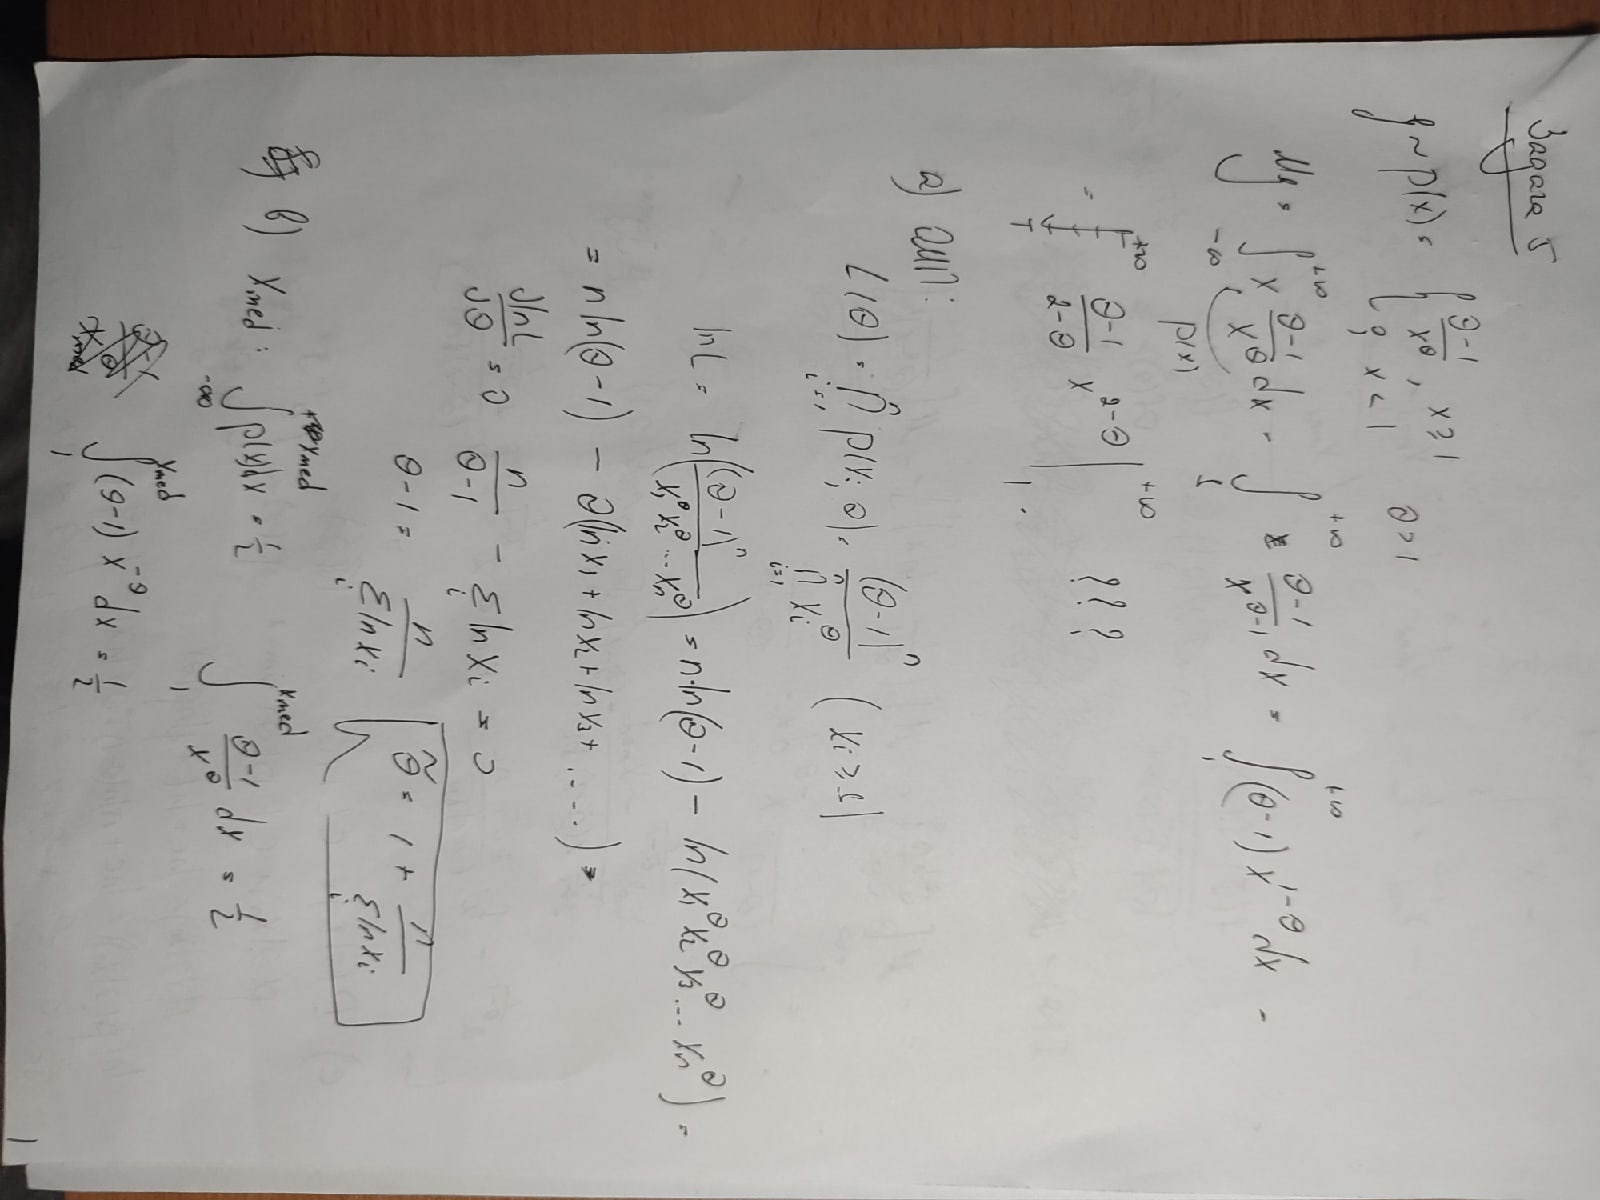 Задача 5
ξ ~ p(x) = { (θ-1)/x^θ, x ≥ 1
0, x < 1    θ > 1
Mξ = ∫_{-∞}^{+∞} x (θ-1)/x^θ dx = ∫_1^{+∞} (θ-1)/x^{θ-1} dx = ∫_1^{+∞} (θ-1) x^{1-θ} dx =
p(x)
= (θ-1)/(2-θ) x^{2-θ} |_1^{+∞} ???
а) ОМП:
L(θ) = ∏_{i=1}^n p(x_i, θ) = (θ-1)^n / ∏_{i=1}^n x_i^θ (x_i ≥ 1)
ln L = ln((θ-1)^n / (x_1^θ x_2^θ ... x_n^θ)) = n·ln(θ-1) - ln(x_1^θ x_2^θ x_3^θ ... x_n^θ) =
= n ln(θ-1) - θ(ln x_1 + ln x_2 + ln x_3 + .....) =
∂ln L/∂θ = 0   n/(θ-1) - Σ_i ln x_i = 0
θ-1 = n/(Σ_i ln x_i)   θ̃ = 1 + n/(Σ_i ln x_i)
в) x_med : ∫_{-∞}^{x_med} p(x)dx = 1/2   ∫_1^{x_med} (θ-1)/x^θ dx = 1/2
∫_1^{x_med} (θ-1) x^{-θ} dx = 1/2
1